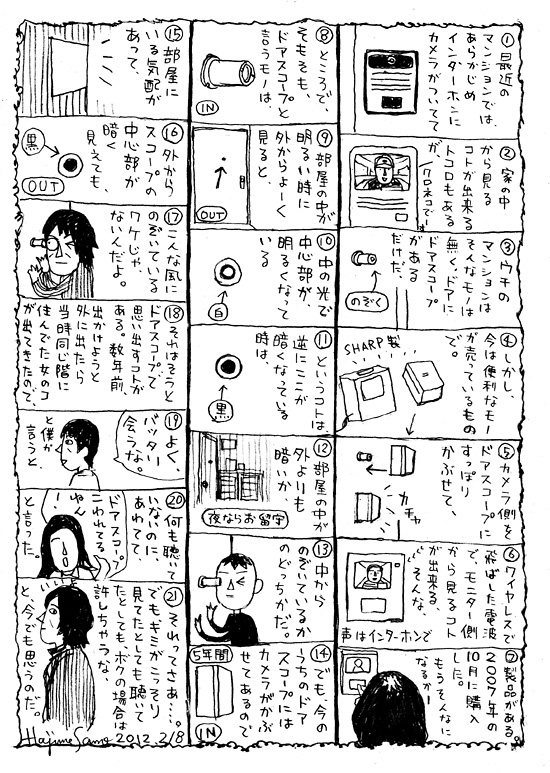 ①最近の
マンションでは、
あらかじめ
インターホンに
カメラがついてて
②家の中
から見る
コトが出来る
トコロもある
が、
クロネコでーす
③ウチの
マンションは
そんなモノは
無く、ドアに
ドアスコープ
がある
だけだ。
のぞく
④しかし、
今は便利なモー
が売っているもの
で。
SHARP製
⑤カメラ側を
ドアスコープに
すっぽり
かぶせて、
カチャ
⑥ワイヤレスで
飛ばした電波
で、モニター側
から見るコト
が出来る、
そんな、
声はインターホンで
⑦製品がある。
2007年の
10月に購入
した。
もうそんなに
なるかー
⑧ところで、
そもそも、
ドアスコープと
言うモノは、
IN
⑨部屋の中が
明るい時に
外からよーく
見ると、
OUT
⑩中の光で
中心部が、
明るくなって
いる
白
⑪というコトは、
逆にここが
暗くなっている
時は、
黒
⑫部屋の中が
外よりも
暗いか、
夜ならお留守
⑬中から
のぞいているか
のどっちかだ。
⑭でも、今の
うちのドア
スコープには
カメラがかぶ
せてあるので
5年間
IN
⑮部屋に
いる気配が
あって、
⑯外から
スコープの
中心部が
暗く
見えても、
黒
OUT
⑰こんな風に
のぞいている
ワケじゃ
ないんだよ。
⑱それはそうと
ドアスコープで
思い出すコトが
ある。数年前、
出かけようと
外に出たら
当時同じ階に
住んでた女のコ
が出てきたので、
⑲よく、
バッター
会うな。
と僕が
言うと、
⑳何も聴いて
いないのに、
あわてて、
ドアスコープ
こわれてる
ねん
ー!
と言った。
㉑それってさぁ…。
でもキミがこっそり
見てたとしても聴いて
たとしても、ボクの場合は
許しちゃうな、
と、今でも思うのだ。
Hajime Sano 2012.2/8